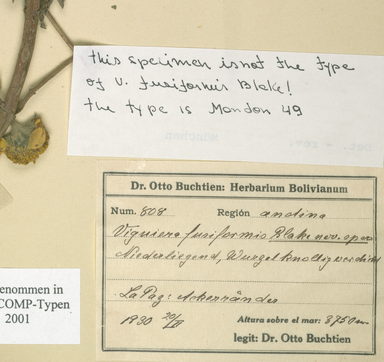 this specimen is not the type
of V. fusiformis Blake!
the type is Mandon 49
Dr. Otto Buchtien: Herbarium Bolivianum
Num. 808 Región andina
Viguiera fusiformis Blake nov. spec.
Niederliegend, Wurzel knollig verdickt
La Paz: Ackerränder
1930 20/IV Altura sobre el mar: 3750 m.
legit: Dr. Otto Buchtien
enommen in
COMP-Typen
2001